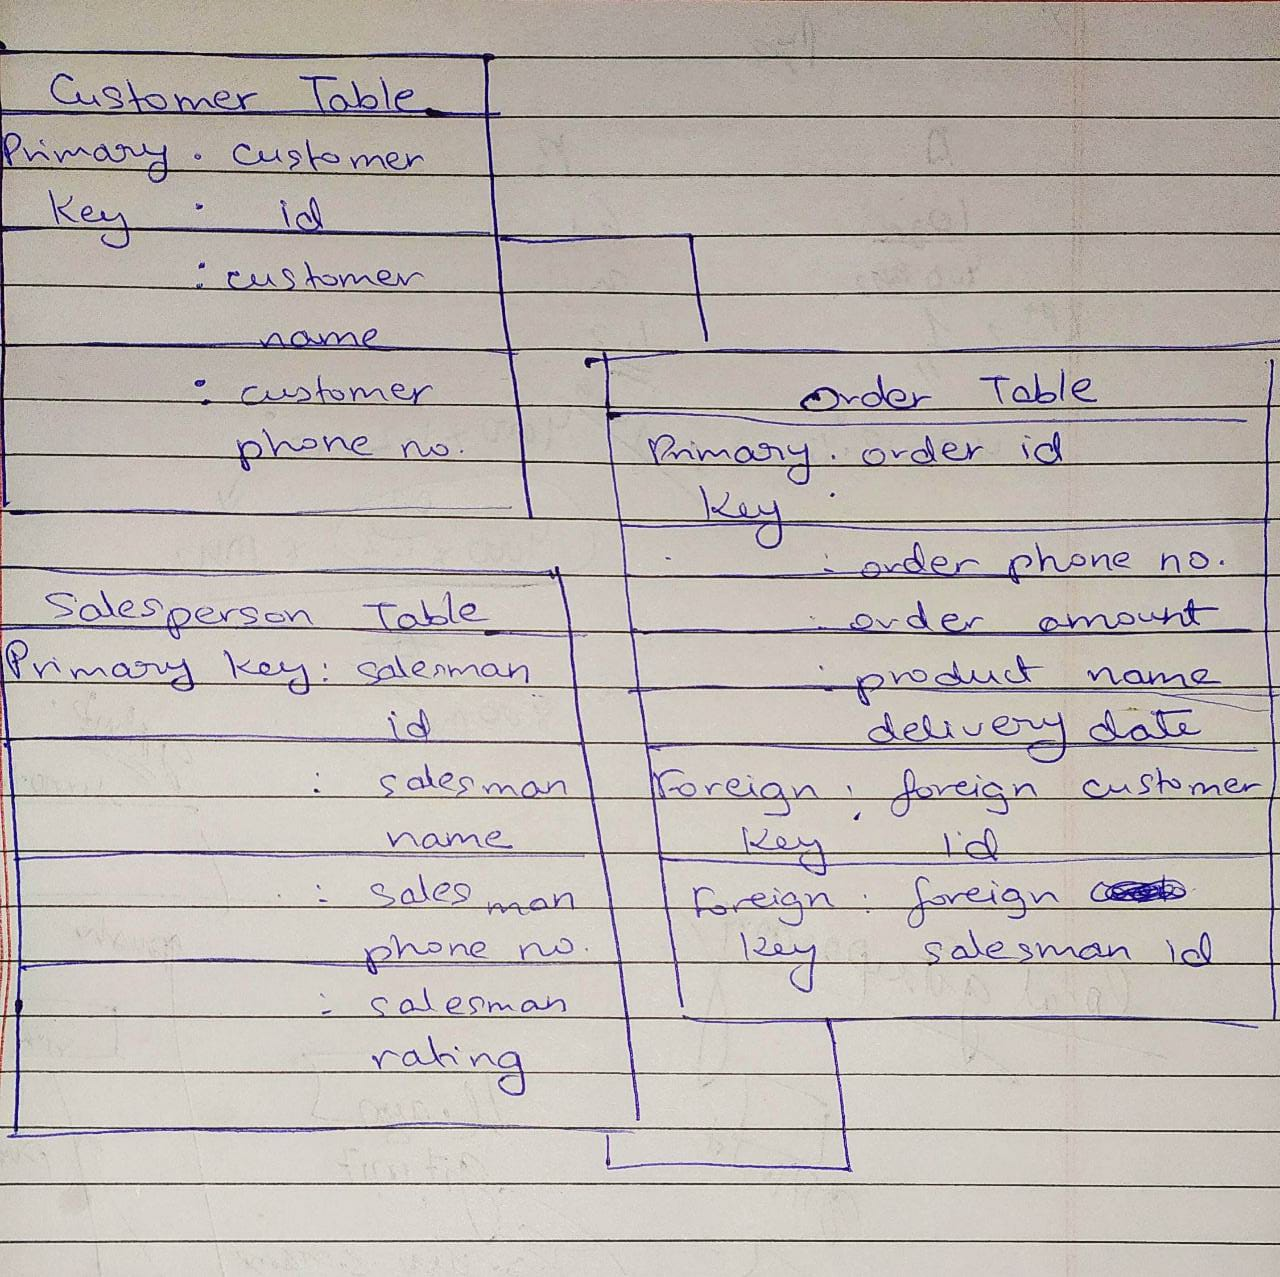 Customer Table
Primary : customer
Key : id
: customer
name
: customer
phone no.
Order Table
Primary : order id
Key
: order phone no.
: order amount
: product name
delivery date
Foreign : foreign customer
Key id
Foreign : foreign
Key salesman id
Salesperson Table
Primary Key : salesman
id
: salesman
name
: sales man
phone no.
: salesman
rating